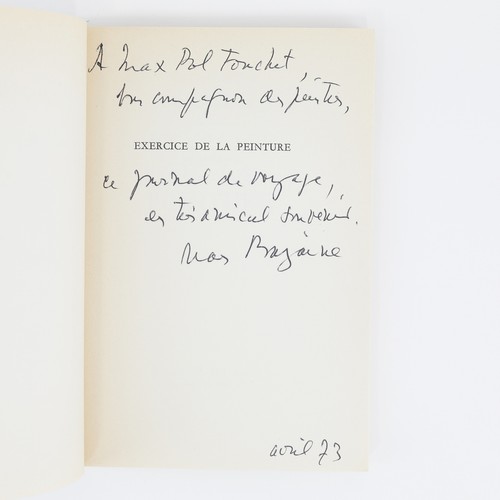 A Max Pol Fouchet,
bon compagnon des peintres,
EXERCICE DE LA PEINTURE
ce journal de voyage,
en très amical souvenir.
Bazaine
avril 73